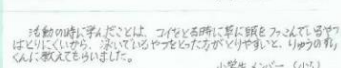 活動の時に学んだことは、コイをとる時に草に頭をつっこんでいるやつ
はとりにくいから、泳いでいるやつをとった方がとりやすいと、りゅうのすけ
くんに教えてもらいました。
小学生メンバー（小5）